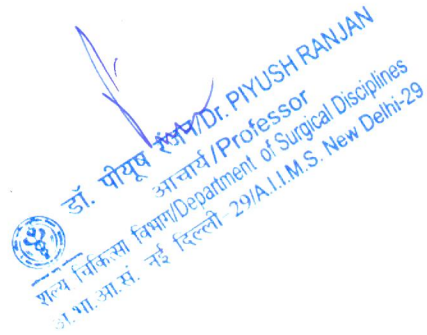 डॉ. पीयूष रंजन/Dr. PIYUSH RANJAN
आचार्य/Professor
शल्य चिकित्सा विभाग/Department of Surgical Disciplines
अ.भा.आ.सं. नई दिल्ली-29/A.I.I.M.S. New Delhi-29